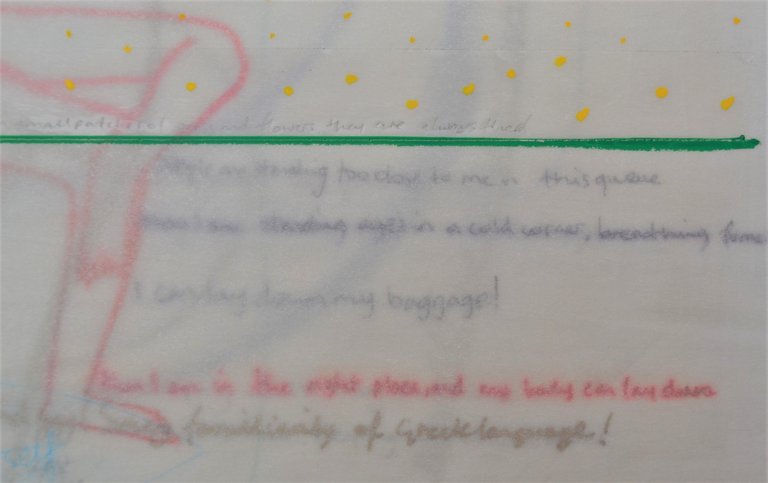 small patch of and flowers they are always tired
standing too close to me in this queue
I am standing in a cold corner, breathing fume
I can lay down my baggage!
I am in the right place, and my body can lay down
familiarity of Greek language!